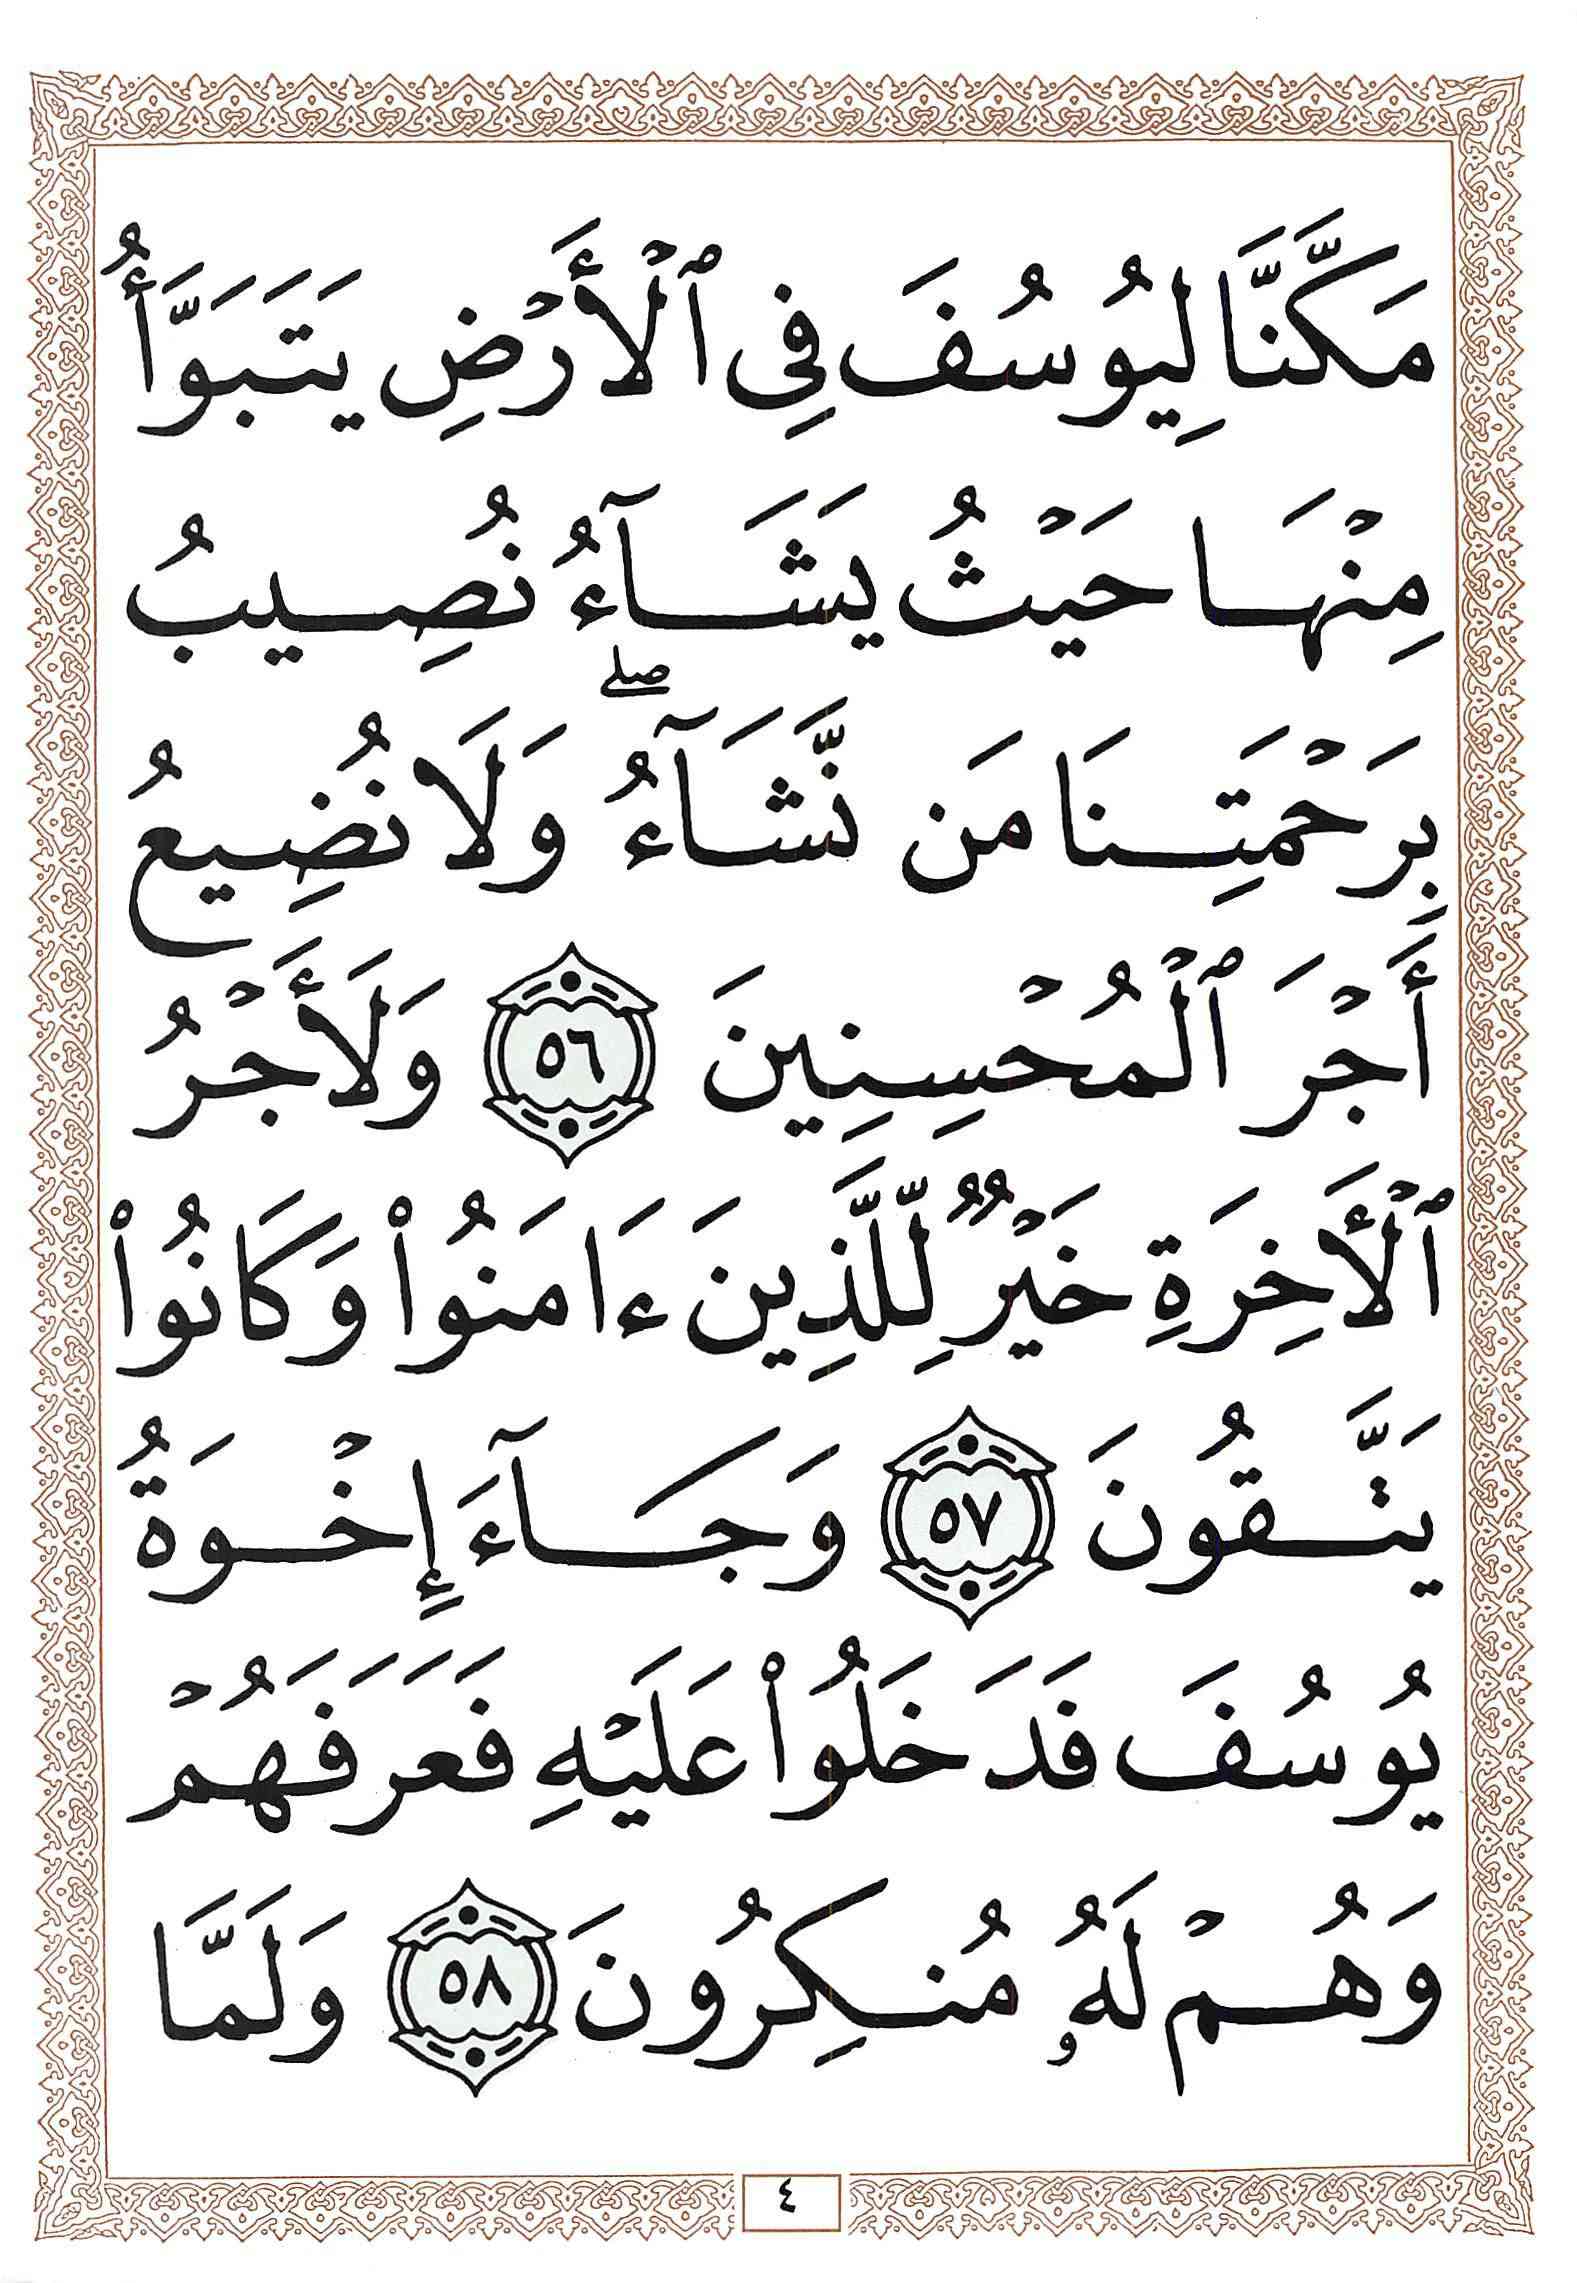 مَكَّنَّا لِيُوسُفَ فِى ٱلْأَرْضِ يَتَبَوَّأُ
مِنْهَا حَيْثُ يَشَآءُ نُصِيبُ
بِرَحْمَتِنَا مَن نَّشَآءُ ۖ وَلَا نُضِيعُ
أَجْرَ ٱلْمُحْسِنِينَ ٥٦ وَلَأَجْرُ
ٱلْأَخِرَةِ خَيْرٌ لِّلَّذِينَ ءَامَنُوا۟ وَكَانُوا۟
يَتَّقُونَ ٥٧ وَجَآءَ إِخْوَةُ
يُوسُفَ فَدَخَلُوا۟ عَلَيْهِ فَعَرَفَهُمْ
وَهُمْ لَهُۥ مُنكِرُونَ ٥٨ وَلَمَّا
٤